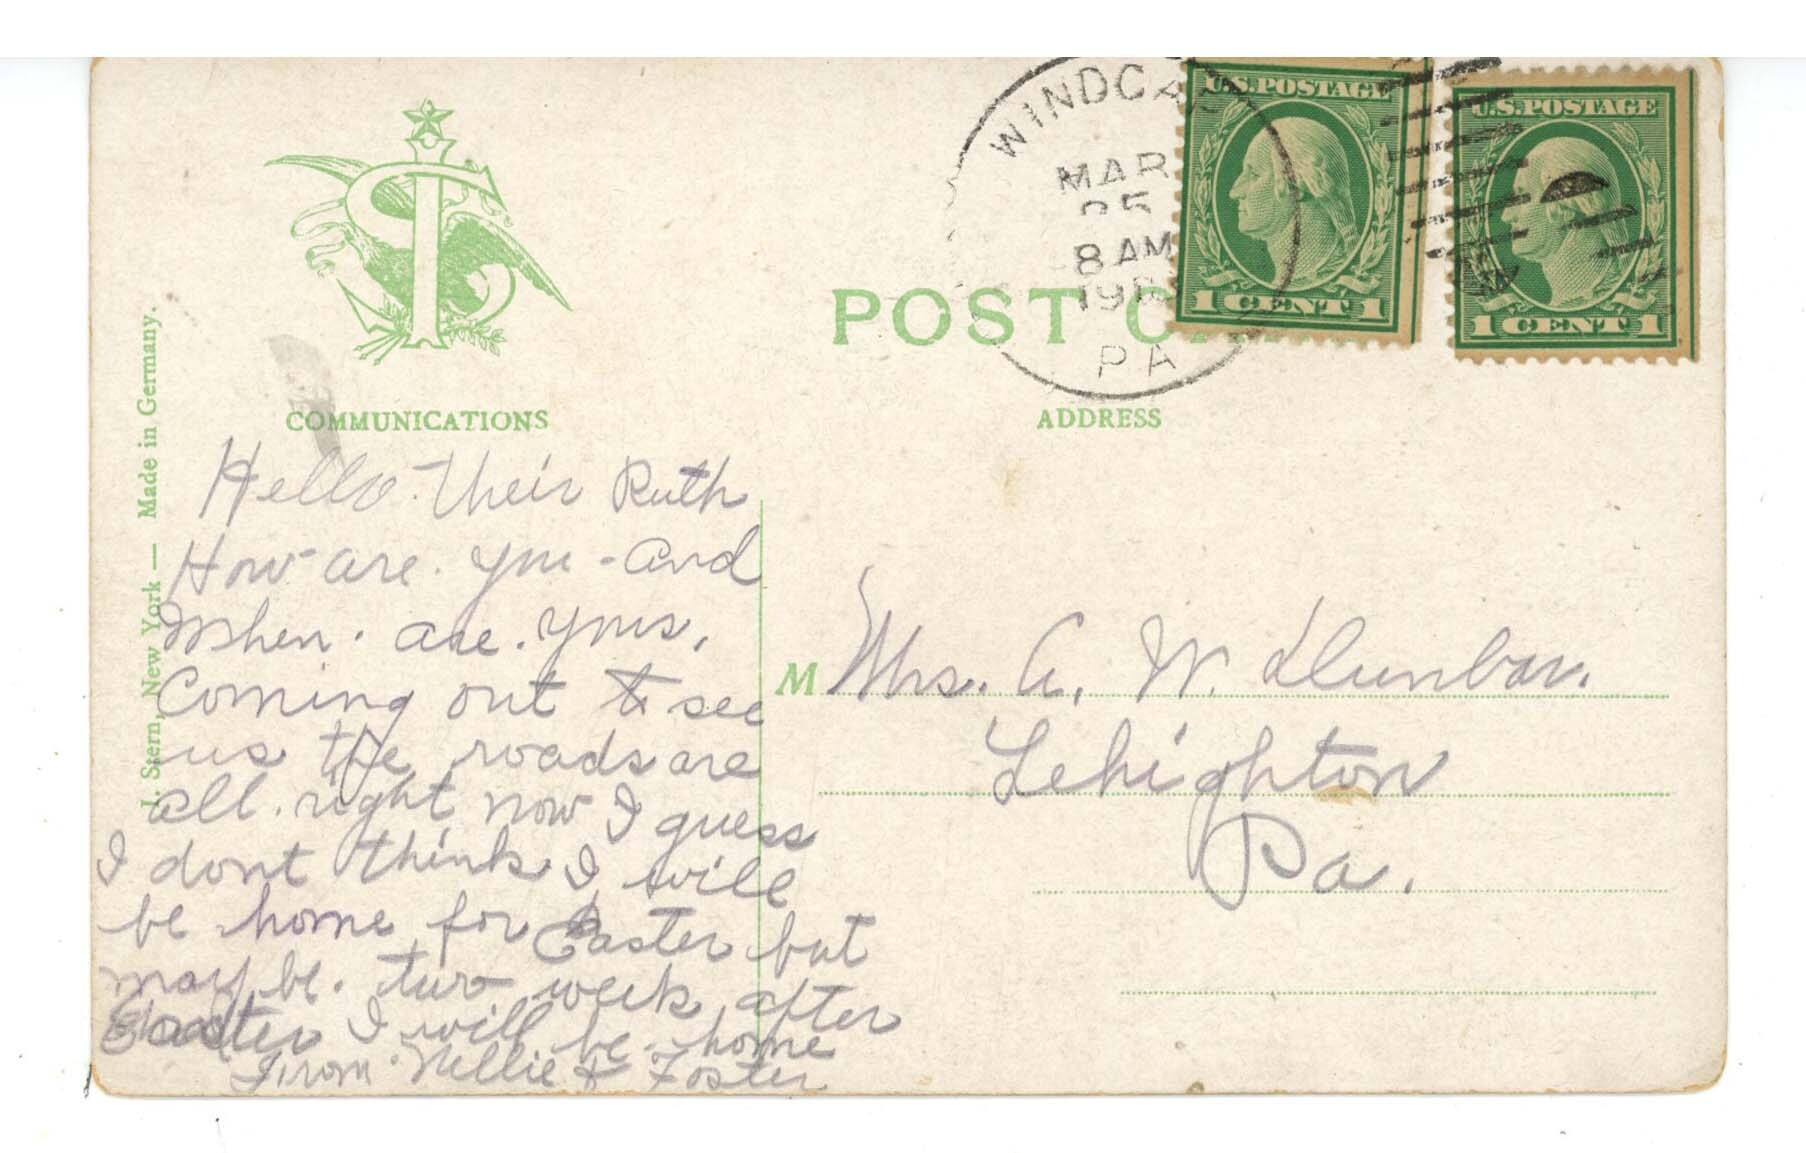 WINDGAP
MAR
25
8 AM
PA
U.S.POSTAGE
1 CENT 1
U.S.POSTAGE
1 CENT 1
POST CA
COMMUNICATIONS
ADDRESS
J. Stern, New York — Made in Germany.
Hello. Their Ruth
How are. you - and
When. are. yous,
Coming out to see
us the roads are
all. right now I guess
I dont think I will
be home for Easter but
may be. two week after
Easter I will be home
From Nellie & Foster
M Mrs. A. W. Dunbar.
Lehighton
Pa.